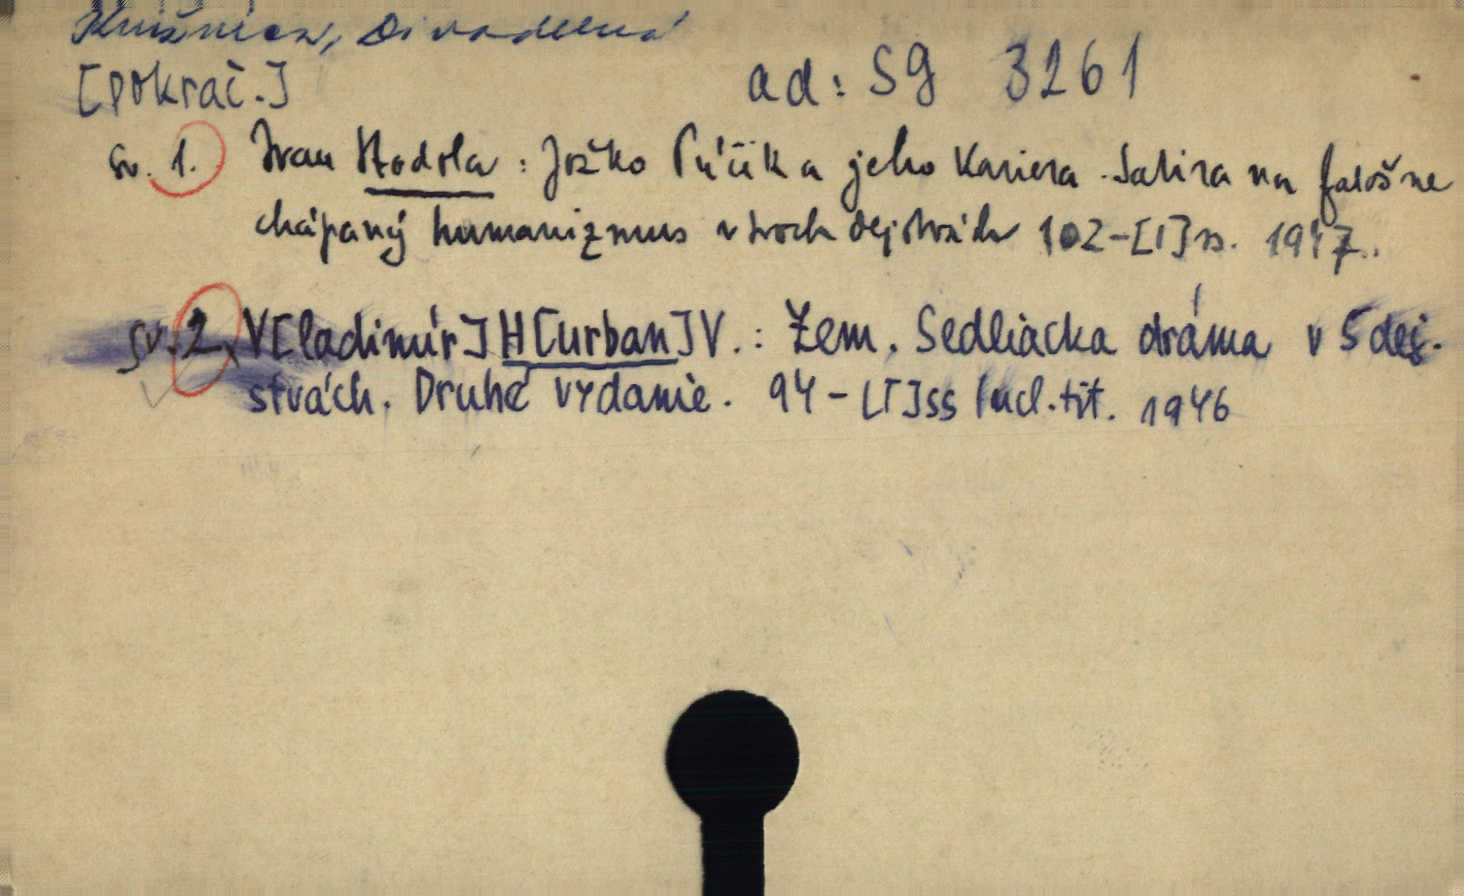 Knižnica, Divadelná
[pokrač.] ad: Sg 3261
sv. 1. Ivan Stodola : Jožko Púčik a jeho kariera. Satira na falošne
chápaný humanizmus v troch dejstvách 102-[I] s. 1947.
sv. 2. V[ladimír] H[urban] V. : Zem. Sedliacka dráma v 5 dej-
stvách. Druhé vydanie. 94-[I] ss incl. tit. 1946